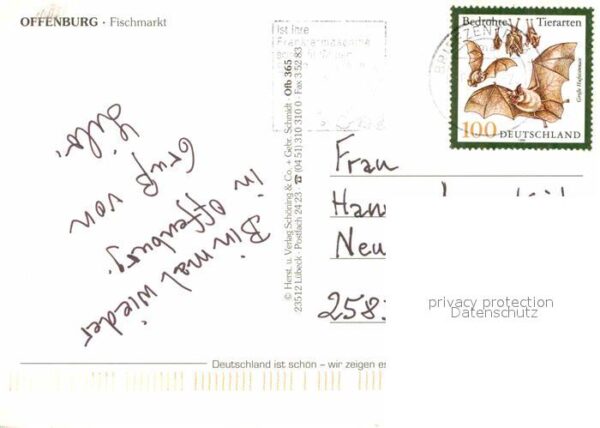 OFFENBURG · Fischmarkt
Bin mal wieder
in Offenburg.
Gruß von
Lilo.
© Herst. u. Verlag Schöning & Co. + Gebr. Schmidt · Ofb 365
23512 Lübeck · Postfach 24 23 · ☎ (04 51) 310 310 0 · Fax 3 52 83
Ist Ihre
Bedrohte Tierarten
Große Hufeisennase
100 DEUTSCHLAND
Frau
Han
Neu
258
privacy protection
Datenschutz
Deutschland ist schön – wir zeigen es